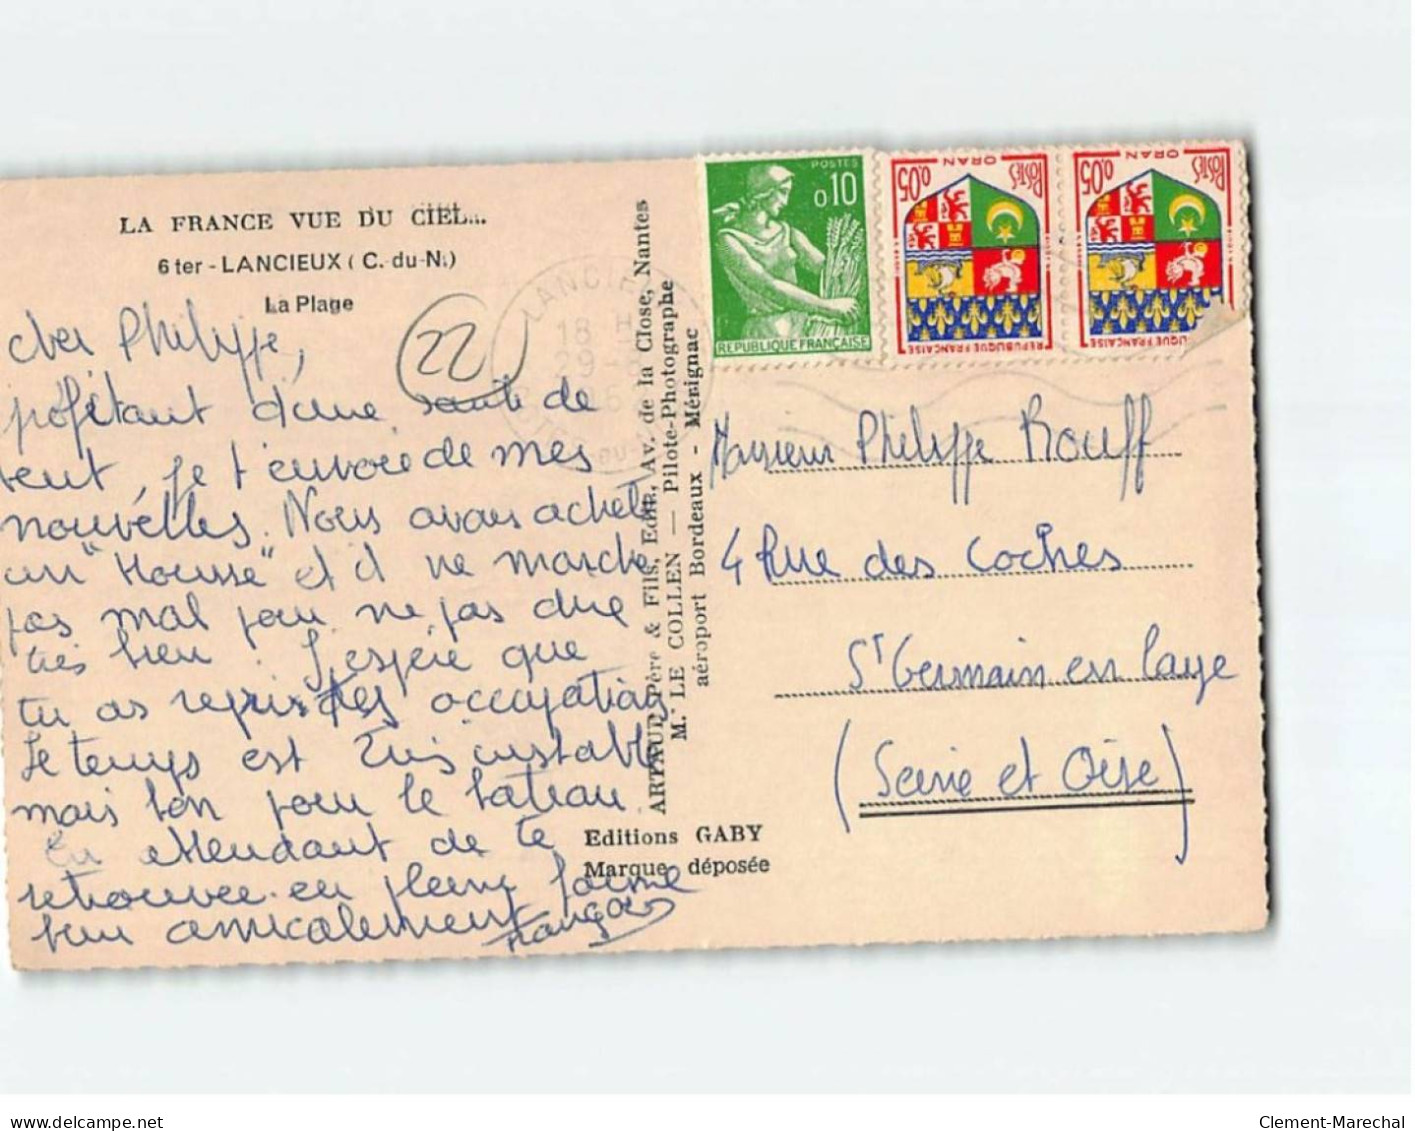 LA FRANCE VUE DU CIEL...
6 ter - LANCIEUX ( C.-du-N.)
La Plage
22
cher Philippe,
profitant d'une saute de
vent, je t'envoie de mes
nouvelles. Nous avons acheté
un "Mousse" et il ne marche
pas mal pour ne pas dire
très bien. J'espère que
tu as repris tes occupations.
Le temps est très instable
mais bon pour le bateau.
En attendant de te
retrouver en pleine forme
bien amicalement
François
ARTAUD Père & Fils, Edit., Av. de la Close, Nantes
M. LE COLLEN — Pilote-Photographe
aéroport Bordeaux - Mérignac
Editions GABY
Marque déposée
LANCIEUX
18 H
29
POSTES
0,10
REPUBLIQUE FRANÇAISE
POSTES 0,05
ORAN
REPUBLIQUE FRANÇAISE
POSTES 0,05
ORAN
UQUE FRANÇAISE
Monsieur Philippe Rouff
4 Rue des Coches
St Germain en Laye
(Seine et Oise)
delcampe.net
Clement-Marechal